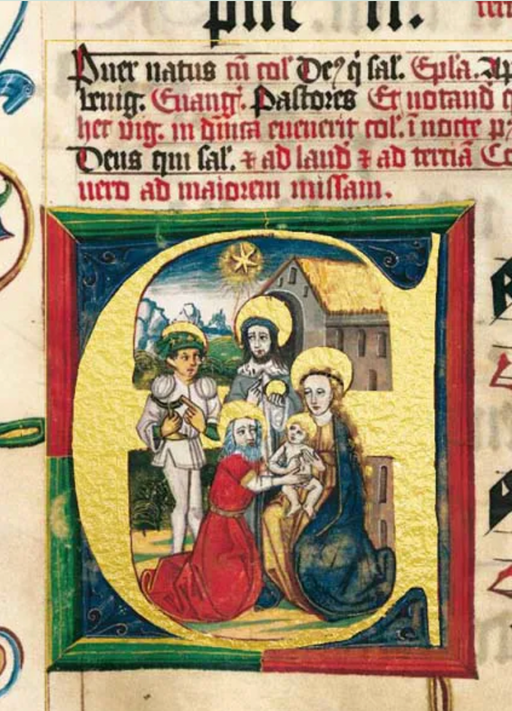 Puer natus cū col' Deꝰ q̇ sal. Epl'a. Ap
benig. Euang̾. Pastores Et notand
hec vig. in dn̄ica euenerit col'. ī nocte
Deus qui sal'. ⁊ ad laud ⁊ ad tertiā Co
uero ad maiorem missam.
E